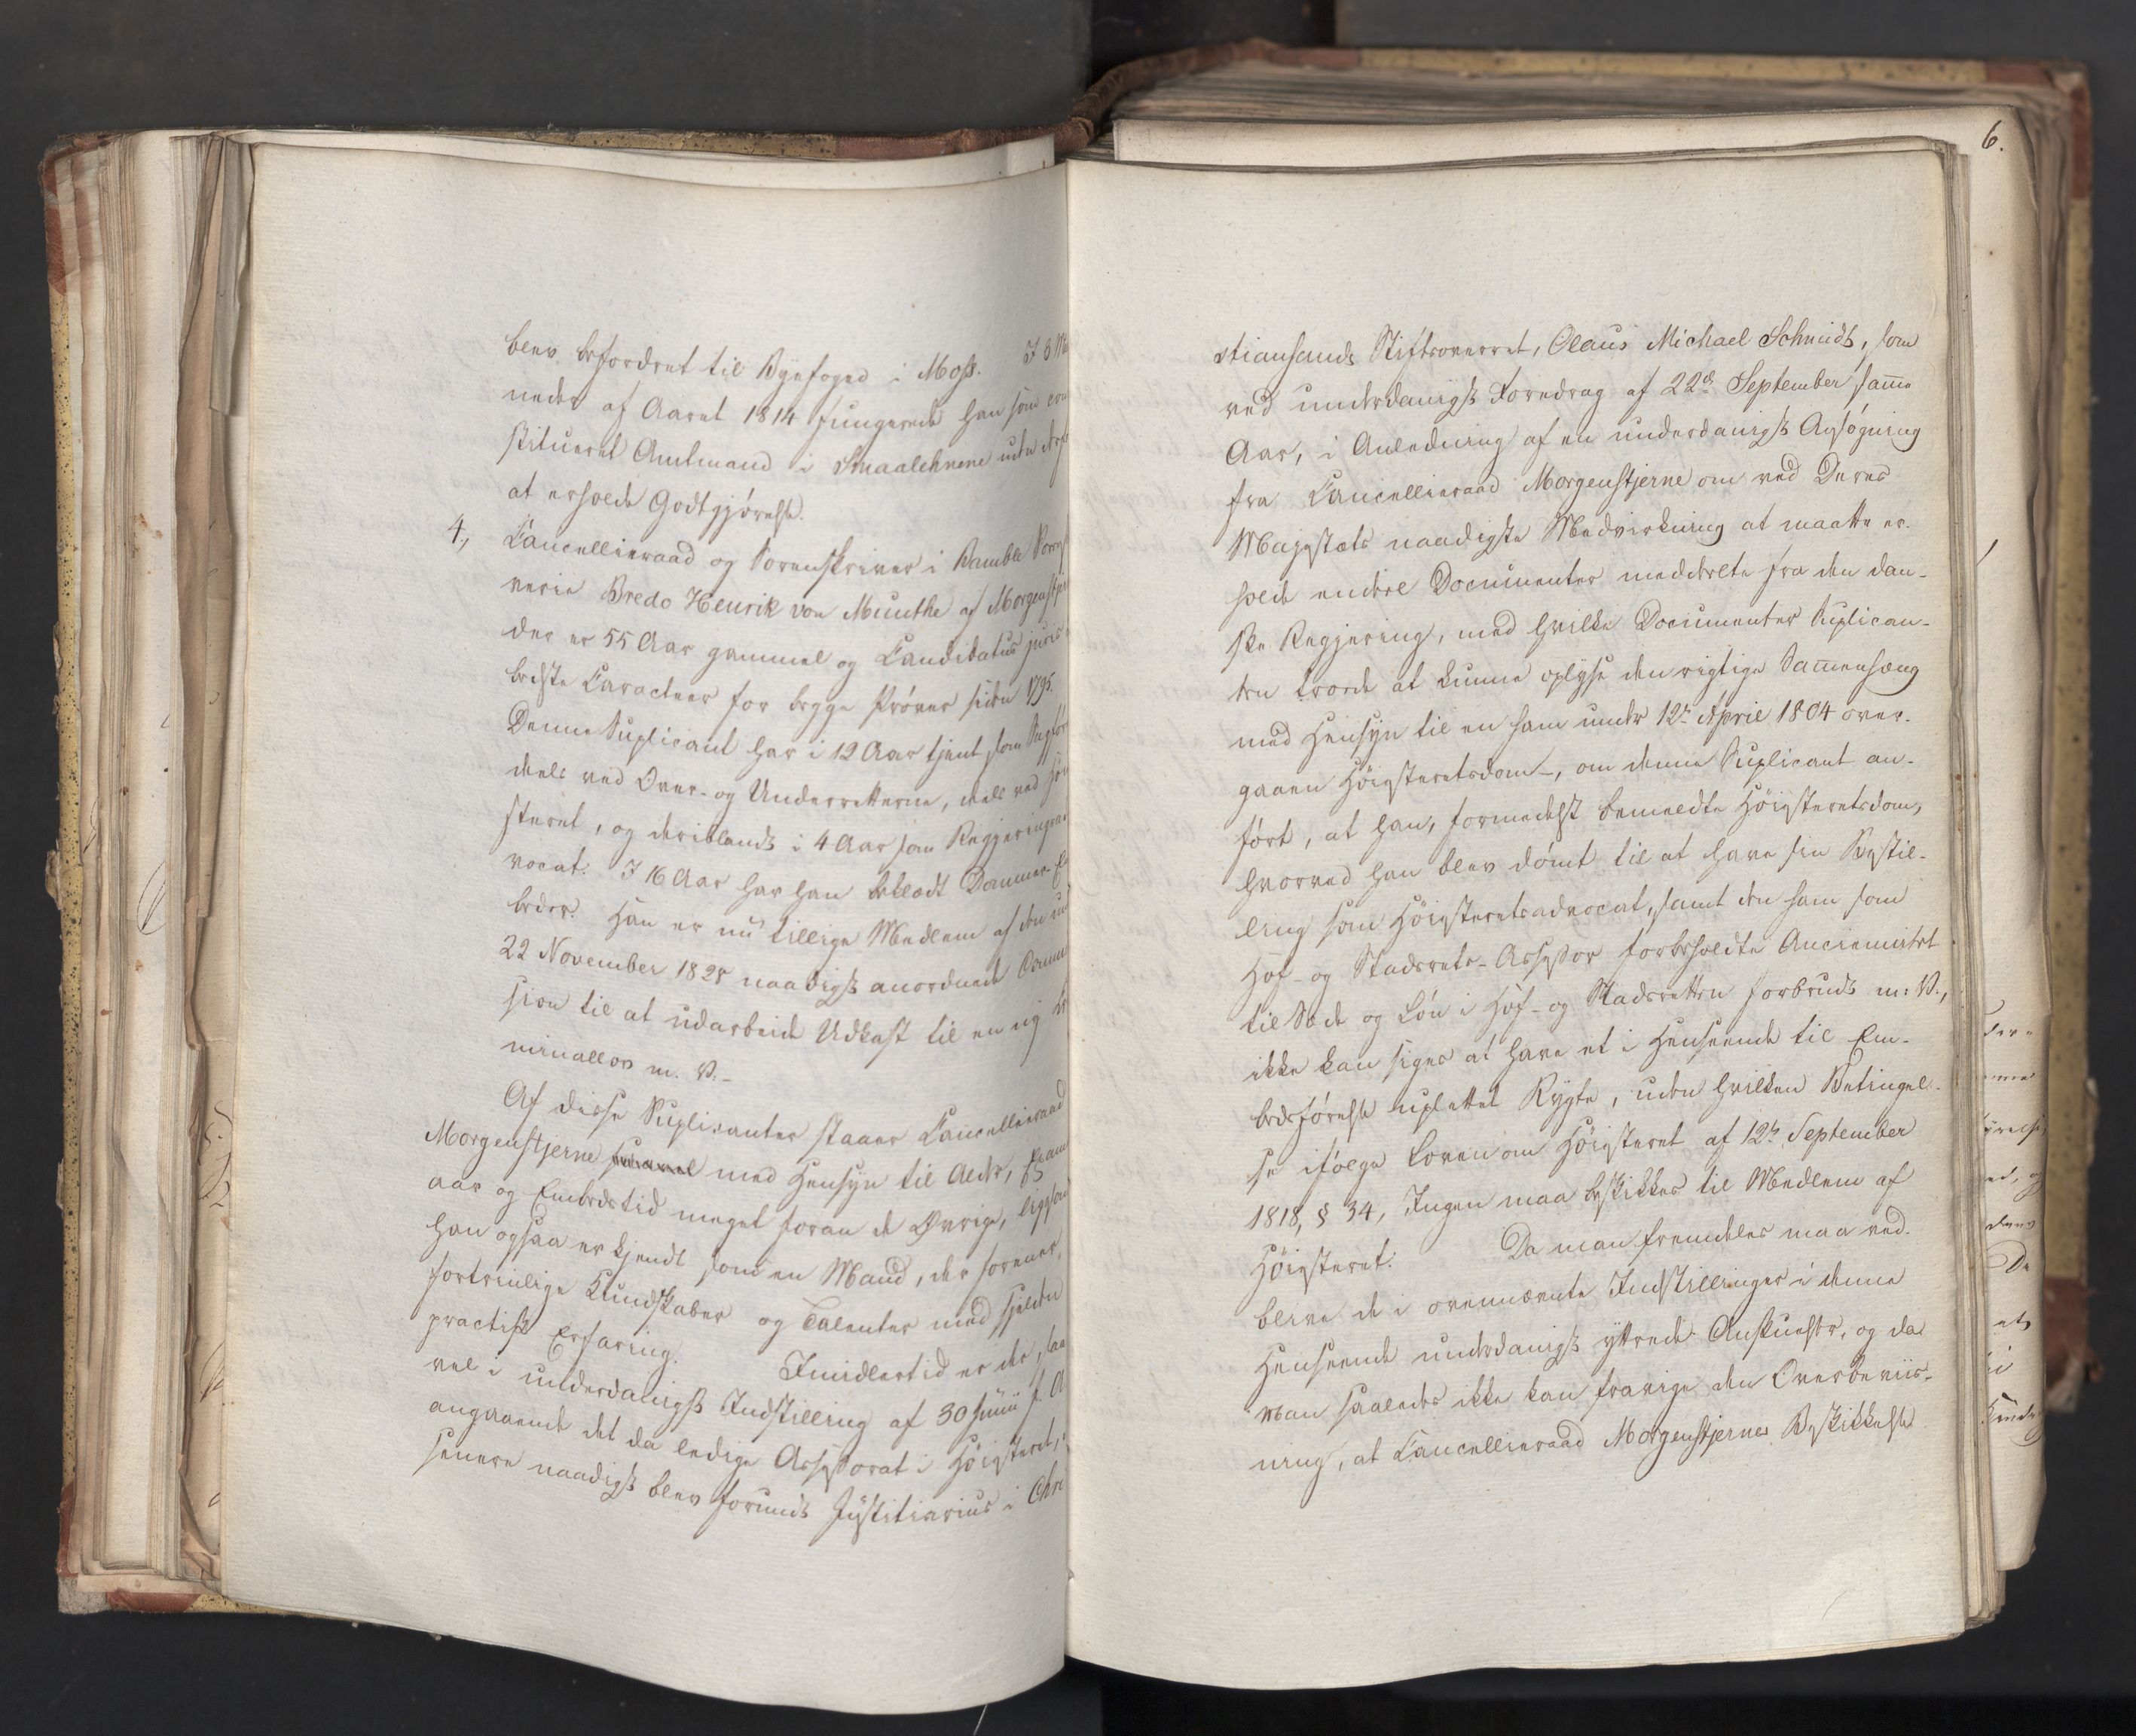 blev befordret til Byefoged i Moss. I 3 Ma
neder af Aaret 1814 fungerede han som con
stitueret Amtmand i Smaalehnene uden derfor
at erholde Godtgjørelse.
4, Cancellieraad og Sorenskriver i Bamble Sorensk
verie Bredo Henrik von Munthe af Morgenstjer
der er 55 Aar gammel og Candidatus juris
bedste Caracteer for begge Prøver siden 1795.
Denne Suplicant har i 12 Aar tjent som Sagfør
deels ved Over- og Underretterne, deels ved Høi
steret, og deriblandt i 4 Aar som Regjeringsad
vocat. I 16 Aar har han beklædt Dommer-Em
beder. Han er nu tillige Medlem af den und
22 November 1828 naadigst anordnede Commis
sion til at udarbeide Udkast til en ny Cri
minallov m. V.-
Af disse Suplicanter staaer Cancellieraad
Morgenstjerne med Hensyn til Alder, Examens
aar og Embedstid meget foran de Øvrige, ligesom
han ogsaa er kjendt som en Mand, der forener
fortrinlige Kundskaber og Talenter med sjelden
practisk Erfaring. Imidlertid er der, saa
vel i underdanigst Indstilling af 30 Junii f. A
angaaende det da ledige Assessorat i Høiesteret,
senere naadigst blev forundt Justitiarius i Chri
6.
stiansands Stiftsoverret, Olaus Michael Schmidt, som
ved underdanigst Foredrag af 22de September samme
Aar, i Anledning af en underdanigst Ansøgning
fra Cancellieraad Morgenstjerne om ved Deres
Majestæts naadigste Medvirkning at maatte er-
holde endeel Documenter meddeelte fra den dan-
ske Regjering, med hvilke Documenter Suplican-
ten troede at kunne oplyse den rigtige Sammenhæng
med Hensyn til en ham under 12te April 1804 over-
gaaen Høiesteretsdom-, om denne Suplicant an-
ført, at han, formedelst bemeldte Høiesteretsdom,
hvorved han blev dømt til at have sin Bestil-
ling som Høiesteretsadvocat, samt den ham som
Hof- og Stadsrets-Assessor forbeholdte Ancienitet
til Sæde og Løn i Hof- og Stadsretten forbrudt m: V.,
ikke kan siges at have et i Henseende til Em-
bedsførelse uplettet Rygte, uden hvilken Betingel-
se ifølge Loven om Høiesteret af 12te September
1818, § 34, Ingen maa beskikkes til Medlem af
Høiesteret. Da man fremdeles maa ved-
blive de i ovennævnte Indstillinger i denne
Henseende underdanigst yttrede Anskuelser, og da
man saaledes ikke kan fravige den Overbeviis-
ning, at Cancellieraad Morgenstjernes Beskikkelse